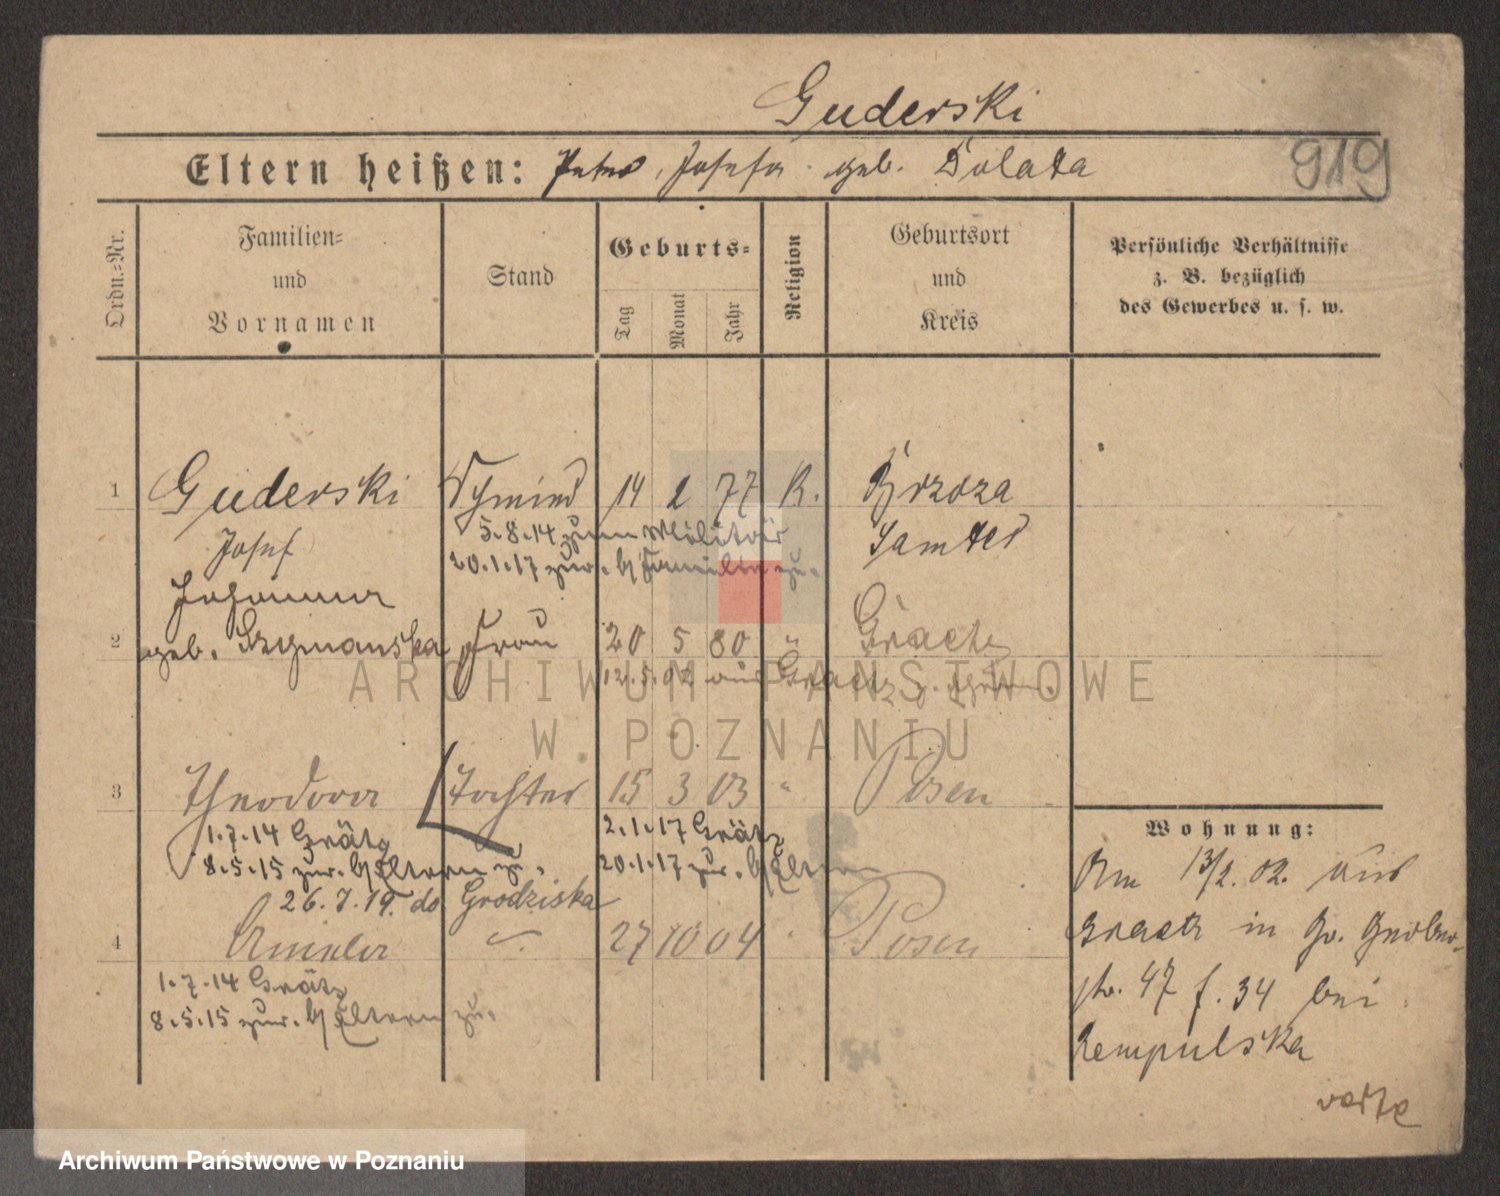 Guderski
Eltern heißen: Peter, Josefa geb. Dolata
919
Ordn.=Nr.
Familien=
und
Vornamen
Stand
Geburts=
Tag
Monat
Jahr
Religion
Geburtsort
und
Kreis
Persönliche Verhältnisse
z. B. bezüglich
des Gewerbes u. s. w.
1 Guderski Schmied 14 2 77 R. Brzoza
Josef
Samter
5.8.14 zum Militär
20.1.17 zur. b/ Familie zu.
Johanna
2 geb. Szymanska Frau 20 5 80 " Graetz
12.5.02 aus Graetz
3 Theodora Tochter 15 3 03 " Posen
1.7.14 Grätz
8.5.15 zur. b/ Eltern zu.
2.1.17 Grätz
20.1.17 zur. b/ Eltern
26.7.19. do Grodziska
4 Aniela 27 10 04 Posen
1.7.14 Grätz
8.5.15 zur. b/ Eltern zu.
Wohnung:
Am 13/2.02. aus
Graetz in Gr. Gerber-
str. 47 f. 34 bei
Rempulska
verte
ARCHIWUM PAŃSTWOWE
W POZNANIU
Archiwum Państwowe w Poznaniu